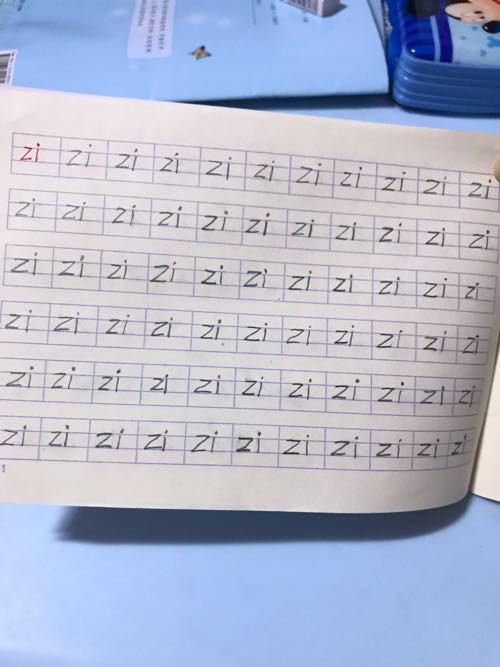 zi zi zi zi zi zi zi zi zi zi zi
zi zi zi zi zi zi zi zi zi zi zi
zi zi zi zi zi zi zi zi zi zi zi
zi zi zi zi zi zi zi zi zi zi zi
zi zi zi zi zi zi zi zi zi zi zi
zi zi zi zi zi zi zi zi zi zi zi
1